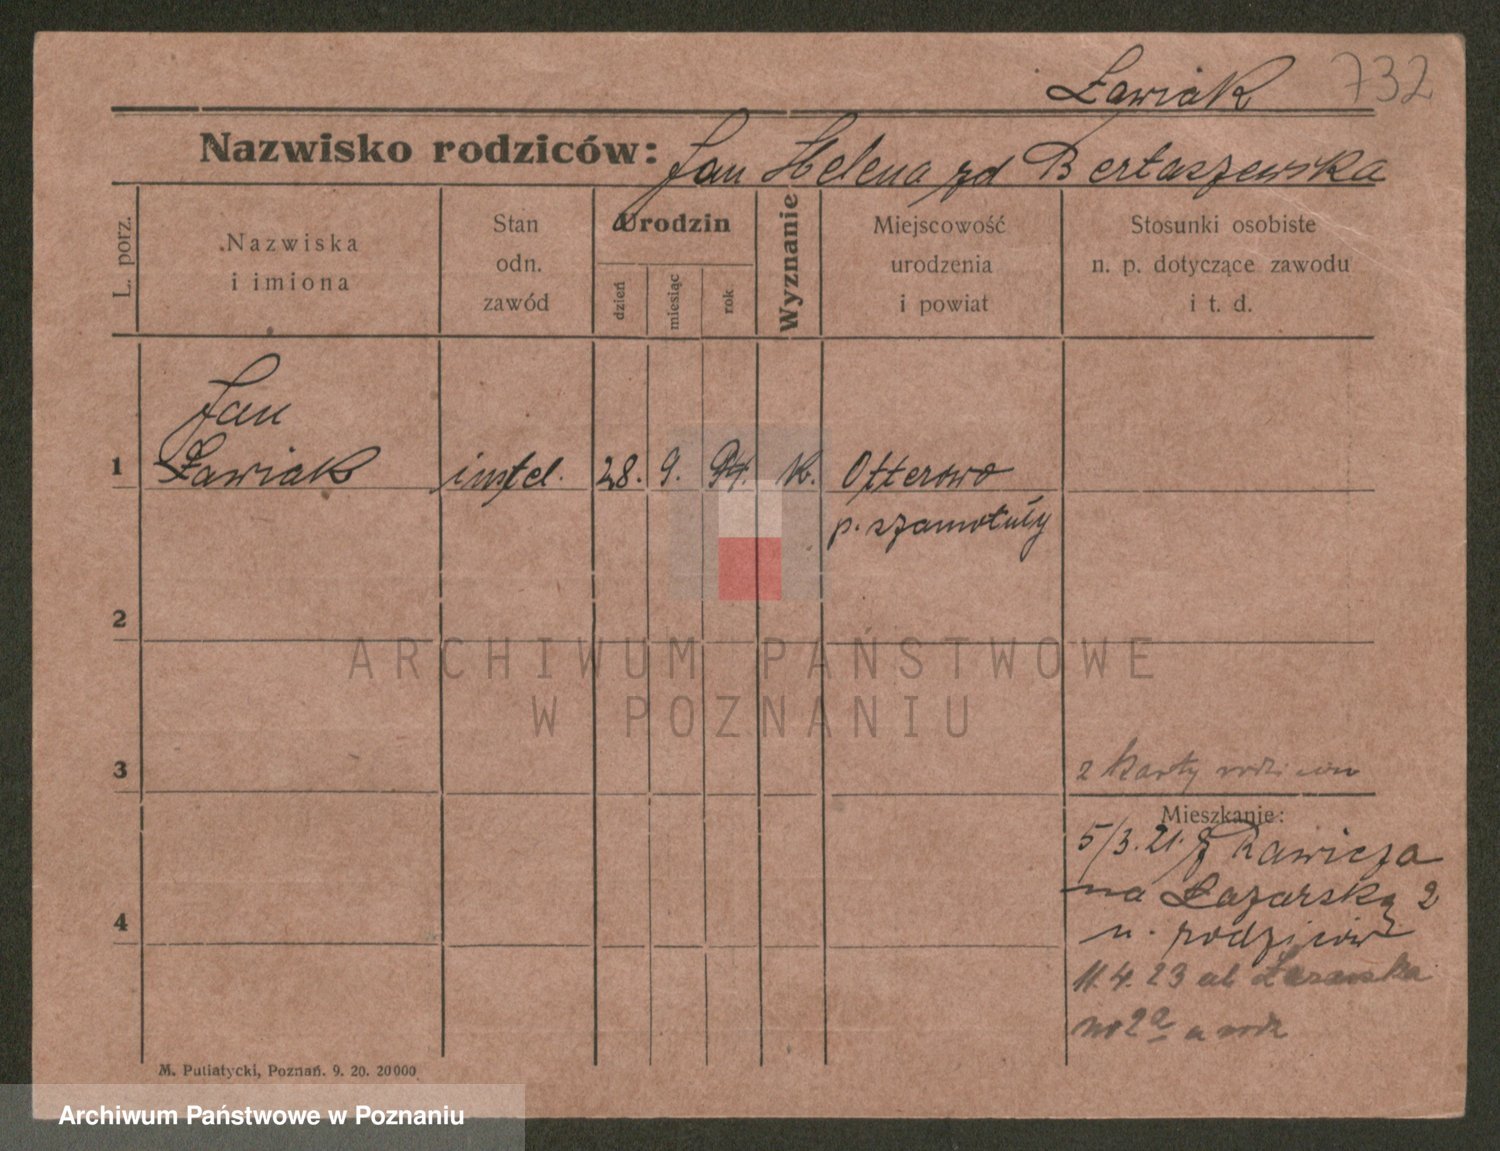 Ławiak 732
Nazwisko rodziców: Jan Helena zd Bertaszewska
L. porz.
Nazwiska
i imiona
Stan
odn.
zawód
Urodzin
dzień
miesiąc
rok
Wyznanie
Miejscowość
urodzenia
i powiat
Stosunki osobiste
n. p. dotyczące zawodu
i t. d.
Jan
1 Ławiak 28. 9. 94. k. Otterowo
p. szamotuły
2
ARCHIWUM PAŃSTWOWE
W POZNANIU
3
2 karty rodziców
Mieszkanie:
5/3.21. z Rawicza
na Łazarską 2
u. rodziców
4
11.4.23 ul Łazarska
no 2a u rodz
M. Putiatycki, Poznań. 9. 20. 20000
Archiwum Państwowe w Poznaniu